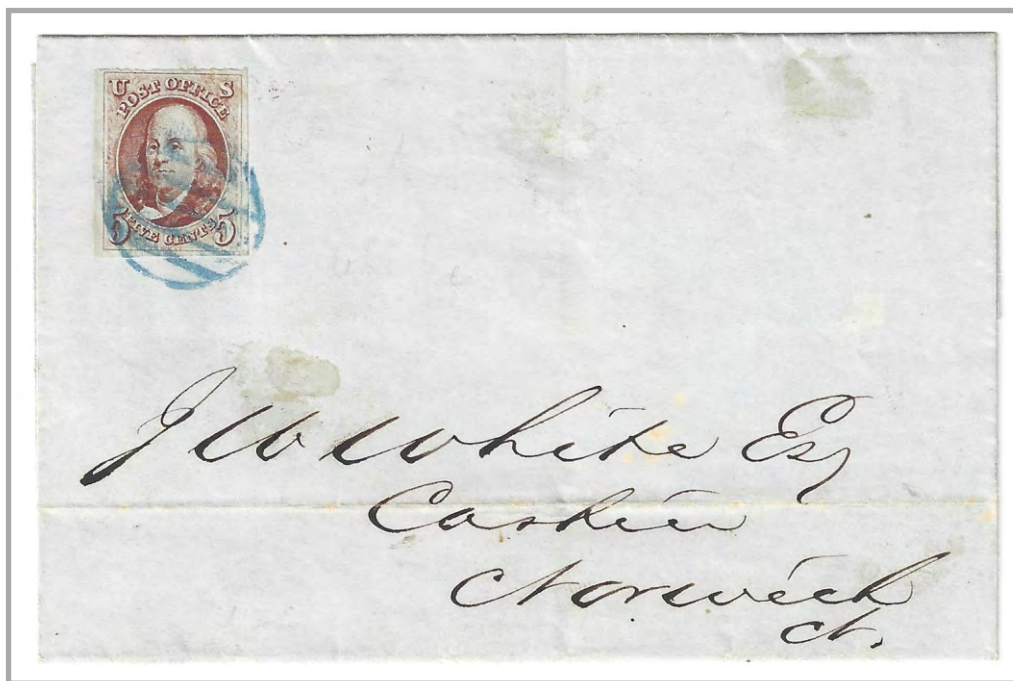 U S
POST OFFICE
5 FIVE CENTS 5
J W White Esq
Cashier
Norwich
Ct.